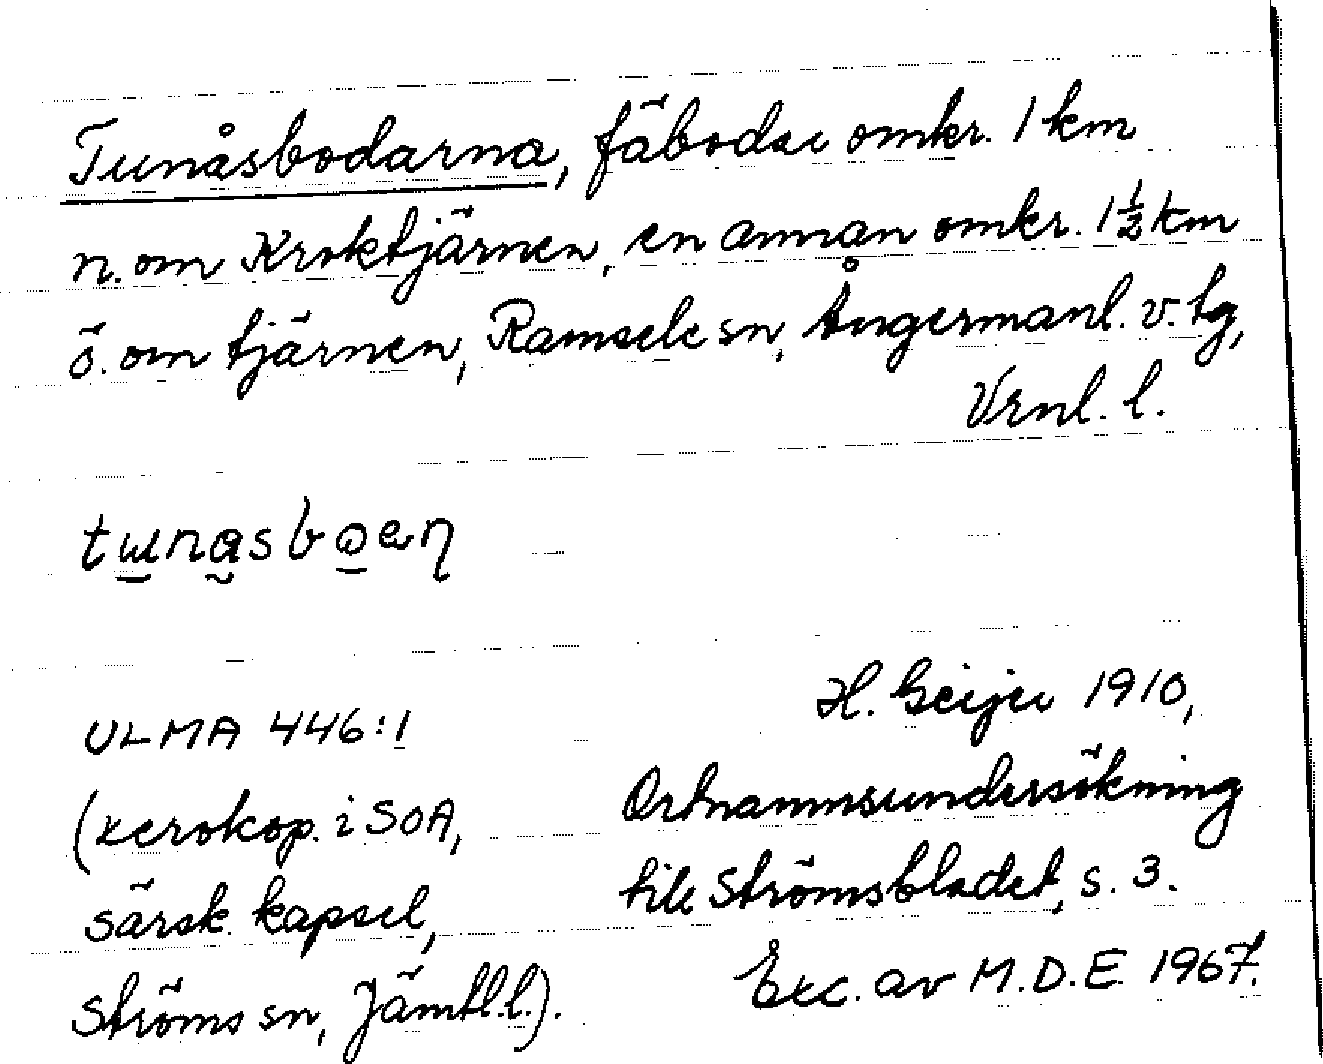 Tunåsbodarna, fäbodar omkr. 1 km
n. om Kroktjärnen, en annan omkr. 1½ km
ö. om tjärnen, Ramsele sn, Ångermanl. v. tg,
Vrnl. l.
tɯnasboeɳ
ULMA 446:1
(xerokop. i SOA,
särsk. kapsel,
Ströms sn, Jämtl.l.).
H. Geijer 1910,
Ortnamnsundersökning
till Strömsbladet, s. 3.
Exc. av M.D.E. 1967.